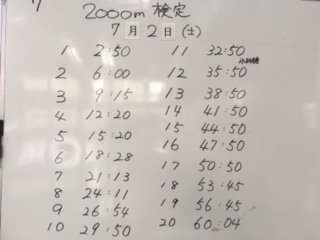 2000m 検定
7月2日(土)
1 2:50
2 6:00
3 9:15
4 12:20
5 15:20
6 18:28
7 21:13
8 24:11
9 26:54
10 29:50
11 32:50
12 35:50
13 38:50
14 41:50
15 44:50
16 47:50
17 50:50
18 53:45
19 56:45
20 60:04